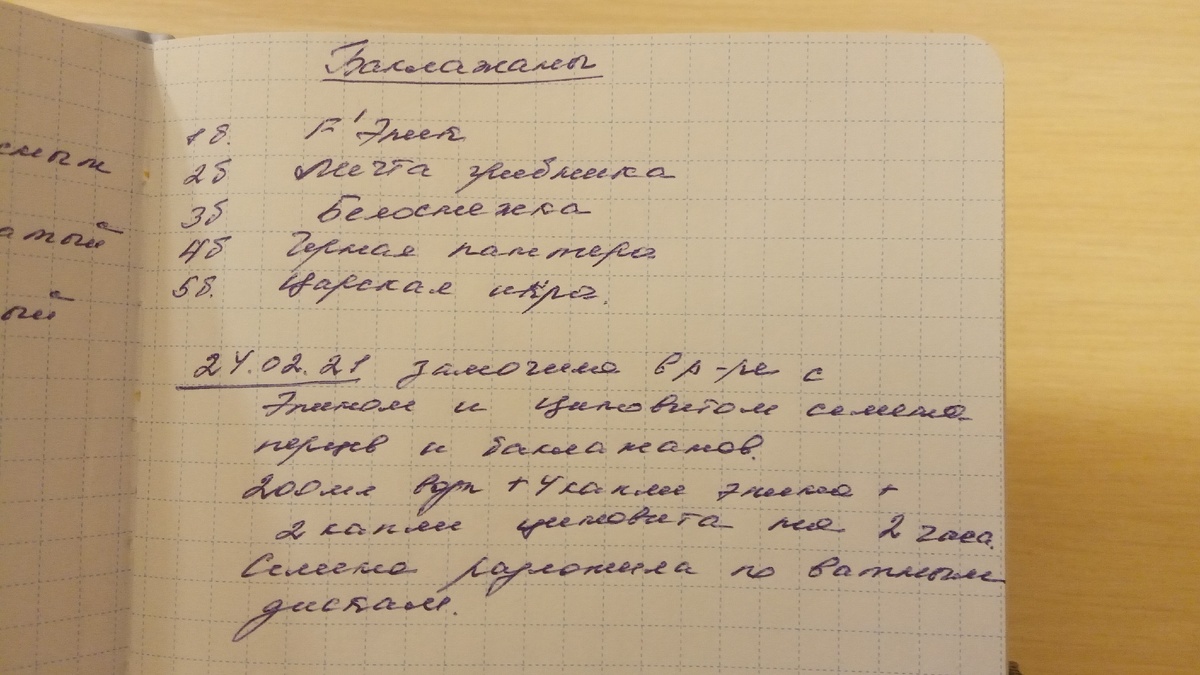 Баклажаны
1б. F1 Эпик
2б Мечта грибника
3б Белоснежка
4б Черная пантера
5б. Царская икра.
24.02.21 замочила в р-ре с
Эпином и цитовитом семена
перцев и баклажанов.
200мл воды + 4 капли эпина +
2 капли цитовита на 2 часа.
Семена разложила по ватным
дискам.
атый
ый